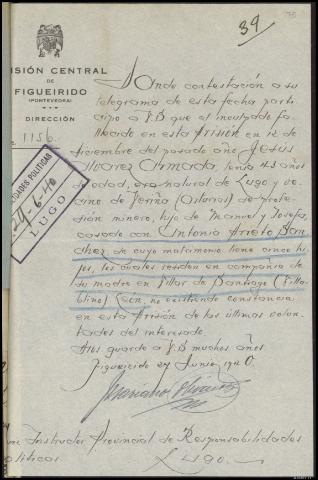 39
ISIÓN CENTRAL
DE
FIGUEIRIDO
(PONTEVEDRA)
DIRECCIÓN
1156
Dando contestación a su
telegrama de esta fecha parti
cipo a V.S que el inculpado fa
llecido en esta Prisión en 12 de
diciembre del pasado año, Jesús
Alvarez Armada, tenía 43 años
de edad, era natural de Lugo y ve
cino de (Asturias) de Profe
sión minero, hijo de Manuel y Josefa,
casado con Antonia Prieto San
chez de cuyo matrimonio tiene cinco hi
jos, los cuales residen en compañía de
su madre en Villar de Santiago (Villa
blino) León, no existiendo constancia
en esta Prisión de las últimas volun
tades del interesado.
Dios guarde a V.S muchos años
Figueirido 27 Junio 1940.
IDADES POLITICAS
29-6-40
LUGO
Instructor Provincial de Responsabilidades
Políticas
Lugo.-